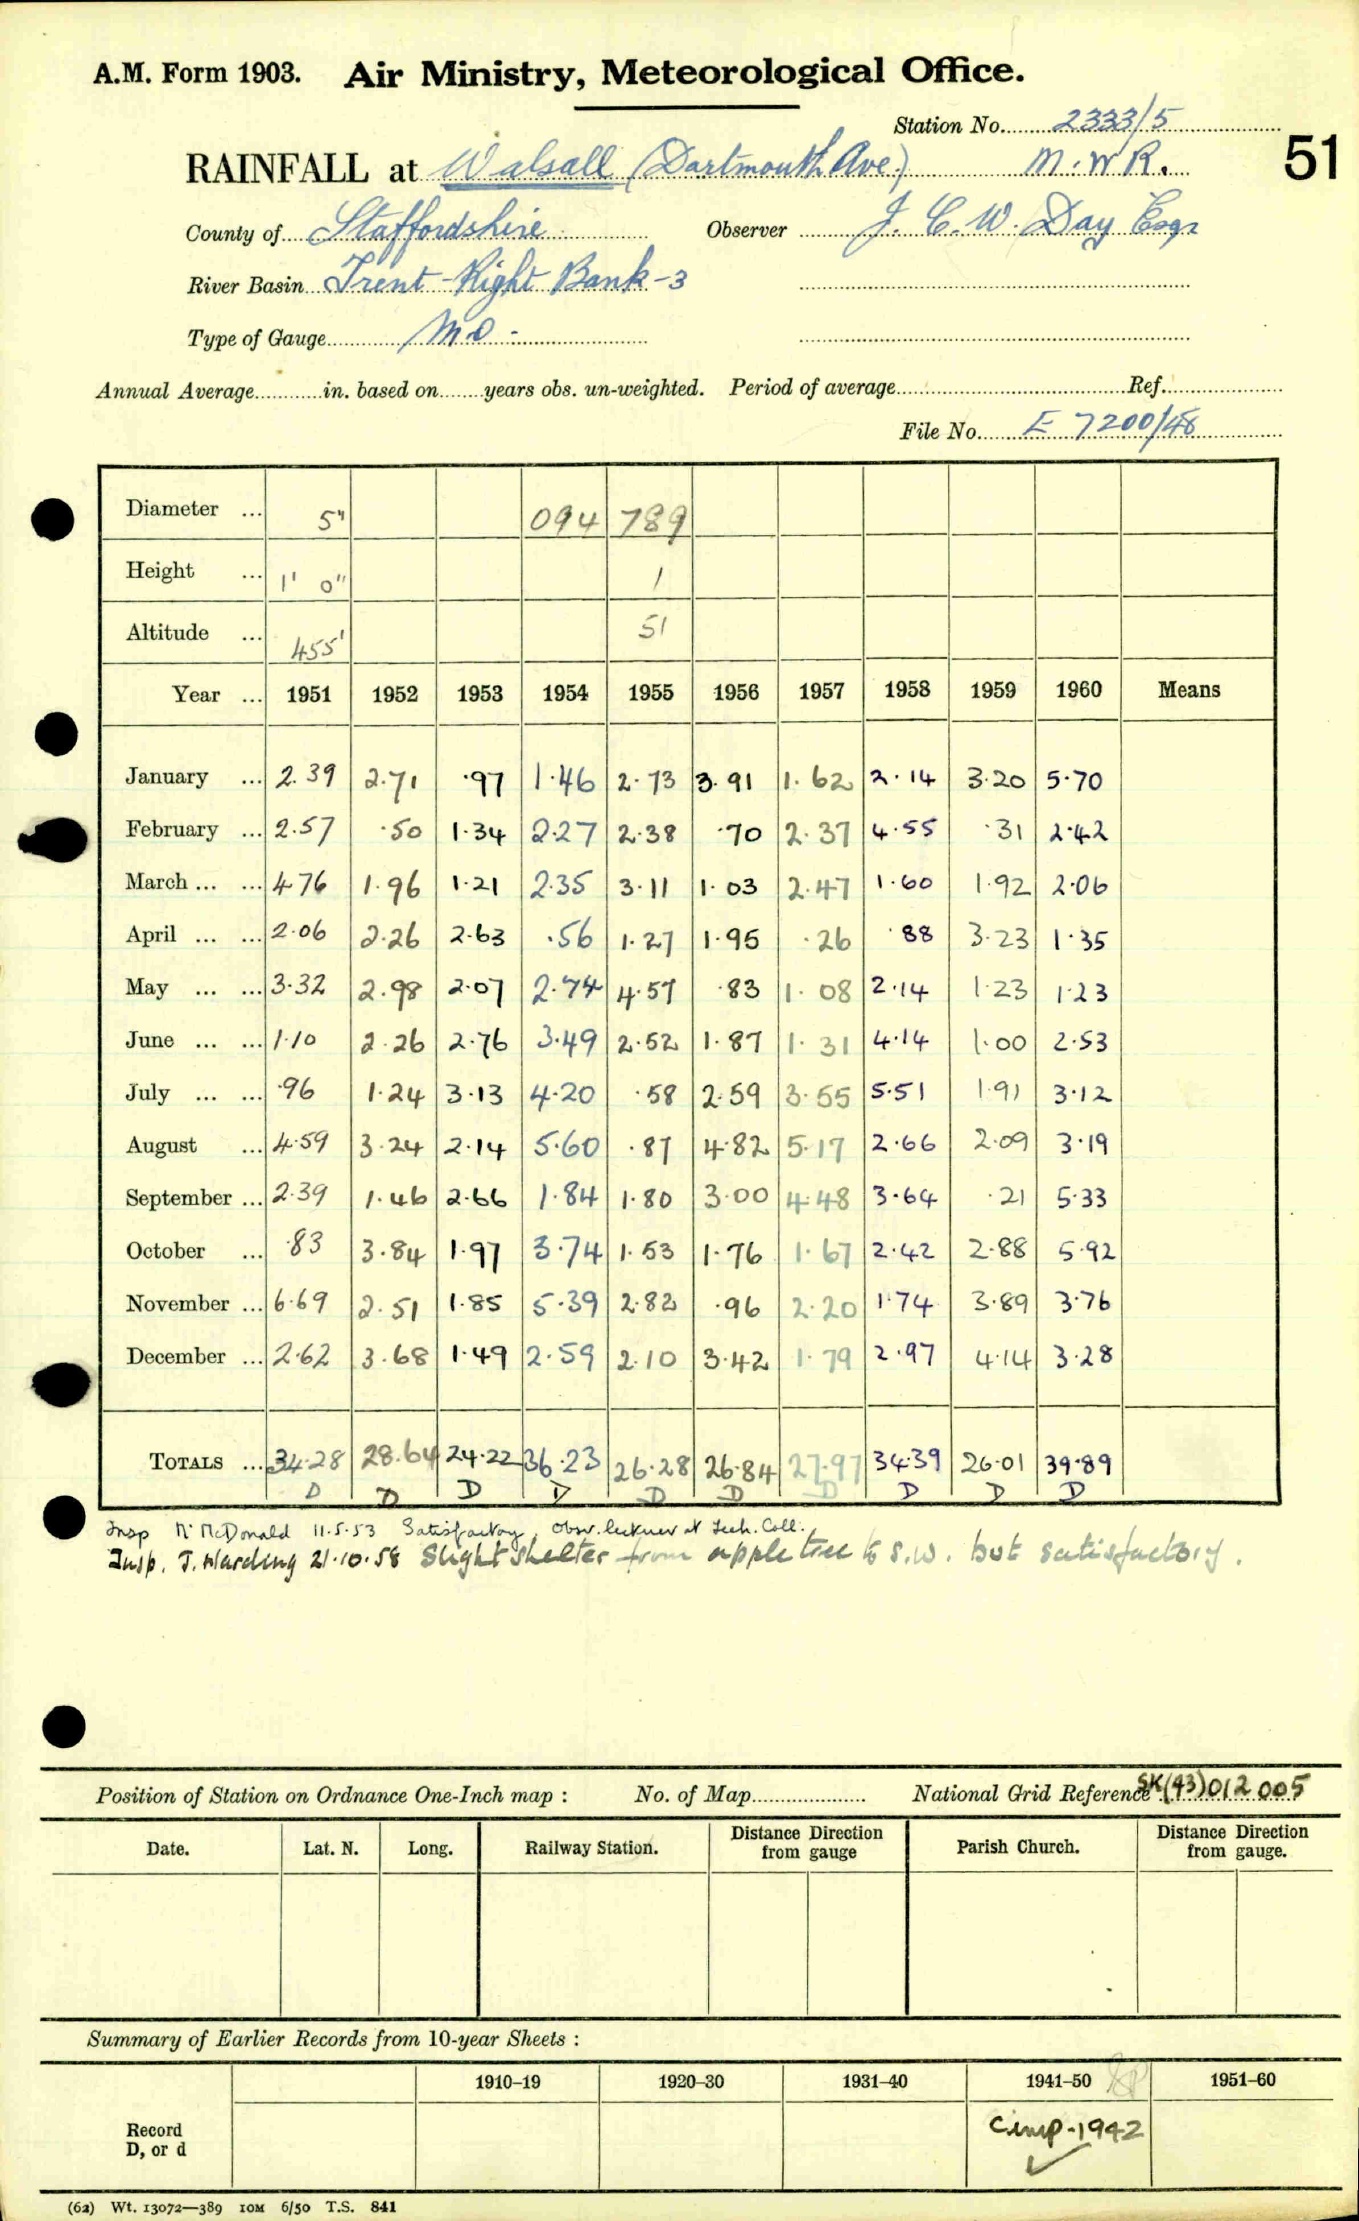 A.M. Form 1903. Air Ministry, Meteorological Office.
Station No. 2333/5
51
RAINFALL at Walsall (Dartmouth Ave.) M.W.R.
County of Staffordshire Observer J. C. W. Day Esqr
River Basin Trent - Right Bank - 3
Type of Gauge MO -
Annual Average in. based on years obs. un-weighted. Period of average Ref.
File No. E 7200/48
Diameter ... 5" 094 789
Height ... 1' 0" 1
Altitude ... 455' 51
Year ... 1951 1952 1953 1954 1955 1956 1957 1958 1959 1960 Means
January ... 2.39 2.71 .97 1.46 2.73 3.91 1.62 2.14 3.20 5.70
February ... 2.57 .50 1.34 2.27 2.38 .70 2.37 4.55 .31 2.42
March ... ... 4.76 1.96 1.21 2.35 3.11 1.03 2.47 1.60 1.92 2.06
April ... ... 2.06 2.26 2.63 .56 1.27 1.95 .26 .88 3.23 1.35
May ... ... 3.32 2.98 2.07 2.74 4.57 .83 1.08 2.14 1.23 1.23
June ... ... 1.10 2.26 2.76 3.49 2.52 1.87 1.31 4.14 1.00 2.53
July ... ... .96 1.24 3.13 4.20 .58 2.59 3.55 5.51 1.91 3.12
August ... 4.59 3.24 2.14 5.60 .87 4.82 5.17 2.66 2.09 3.19
September ... 2.39 1.46 2.66 1.84 1.80 3.00 4.48 3.64 .21 5.33
October ... .83 3.84 1.97 3.74 1.53 1.76 1.67 2.42 2.88 5.92
November ... 6.69 2.51 1.85 5.39 2.82 .96 2.20 1.74 3.89 3.76
December ... 2.62 3.68 1.49 2.59 2.10 3.42 1.79 2.97 4.14 3.28
TOTALS ... 34.28 28.64 24.22 36.23 26.28 26.84 27.97 34.39 26.01 39.89
D D D D D D D D D D
Insp Mr McDonald 11.5.53 Satisfactory. Obsr. lecturer at Tech. Coll.
Insp. J. Harding 21.10.58 Slight shelter from apple tree to S.W. but satisfactory.
Position of Station on Ordnance One-Inch map : No. of Map National Grid Reference SK(43)012 005
Date. Lat. N. Long. Railway Station. Distance Direction from gauge Parish Church. Distance Direction from gauge.
Summary of Earlier Records from 10-year Sheets :
1910–19 1920–30 1931–40 1941–50 1951–60
Record
D, or d
Comp. 1942
(62) Wt. 13072—389 10M 6/50 T.S. 841